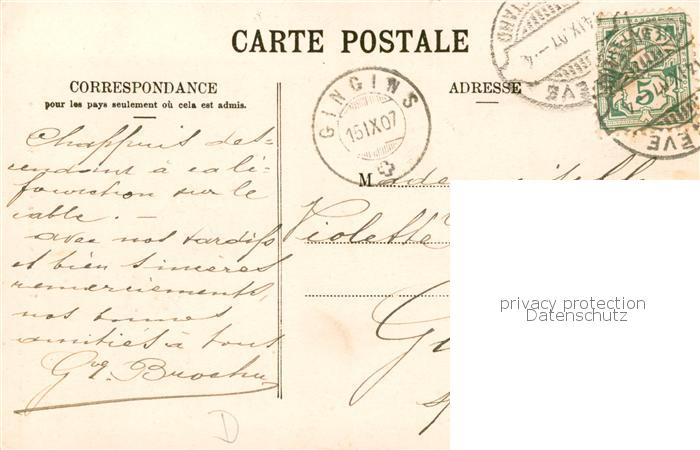 CARTE POSTALE
CORRESPONDANCE
pour les pays seulement où cela est admis.
ADRESSE
GINGINS
15 IX 07
5
Chappuis des=
cendant à cali=
fourchon sur le
cable. —
avec nos tardifs
et bien sincères
remerciements,
nos bonnes
amitiés à tous
M
Violette
privacy protection
Datenschutz
D